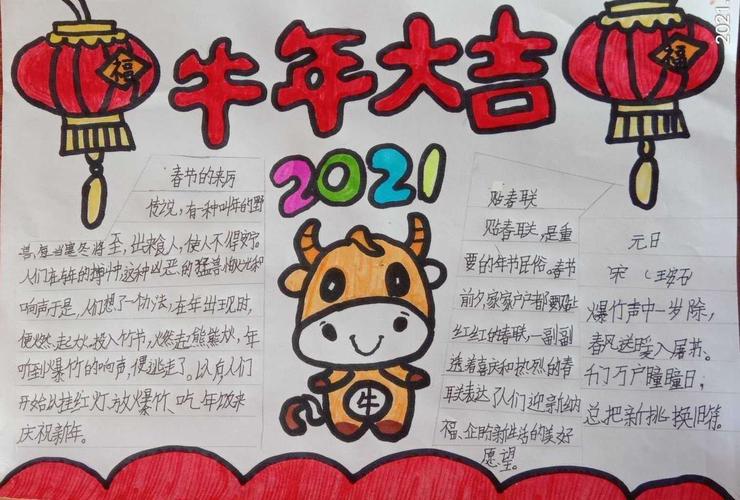 牛年大吉
2021
福
福
2021.
春节的来历
传说，有一种叫年的野
兽，每当寒冬将至，出来食人，使人不得安宁。
人们在 这种凶恶的猛兽 和
响声于是，人们想了一个办法，在年出现时，
便燃起火投入竹节，燃起熊熊火，年
听到爆竹的响声，便逃走了。以后人们
开始以挂红灯、放爆竹、吃年饭来
庆祝新年。
贴春联
贴春联，是重
要的年节民俗。春节
前夕，家家户户都要贴
红红的春联，一副副
透着喜庆和热烈的春
联表达了人们迎新纳
福、企盼新生活的美好
愿望。
元日
宋（王安石
爆竹声中一岁除，
春风送暖入屠苏。
千门万户瞳瞳日，
总把新桃换旧符。
牛